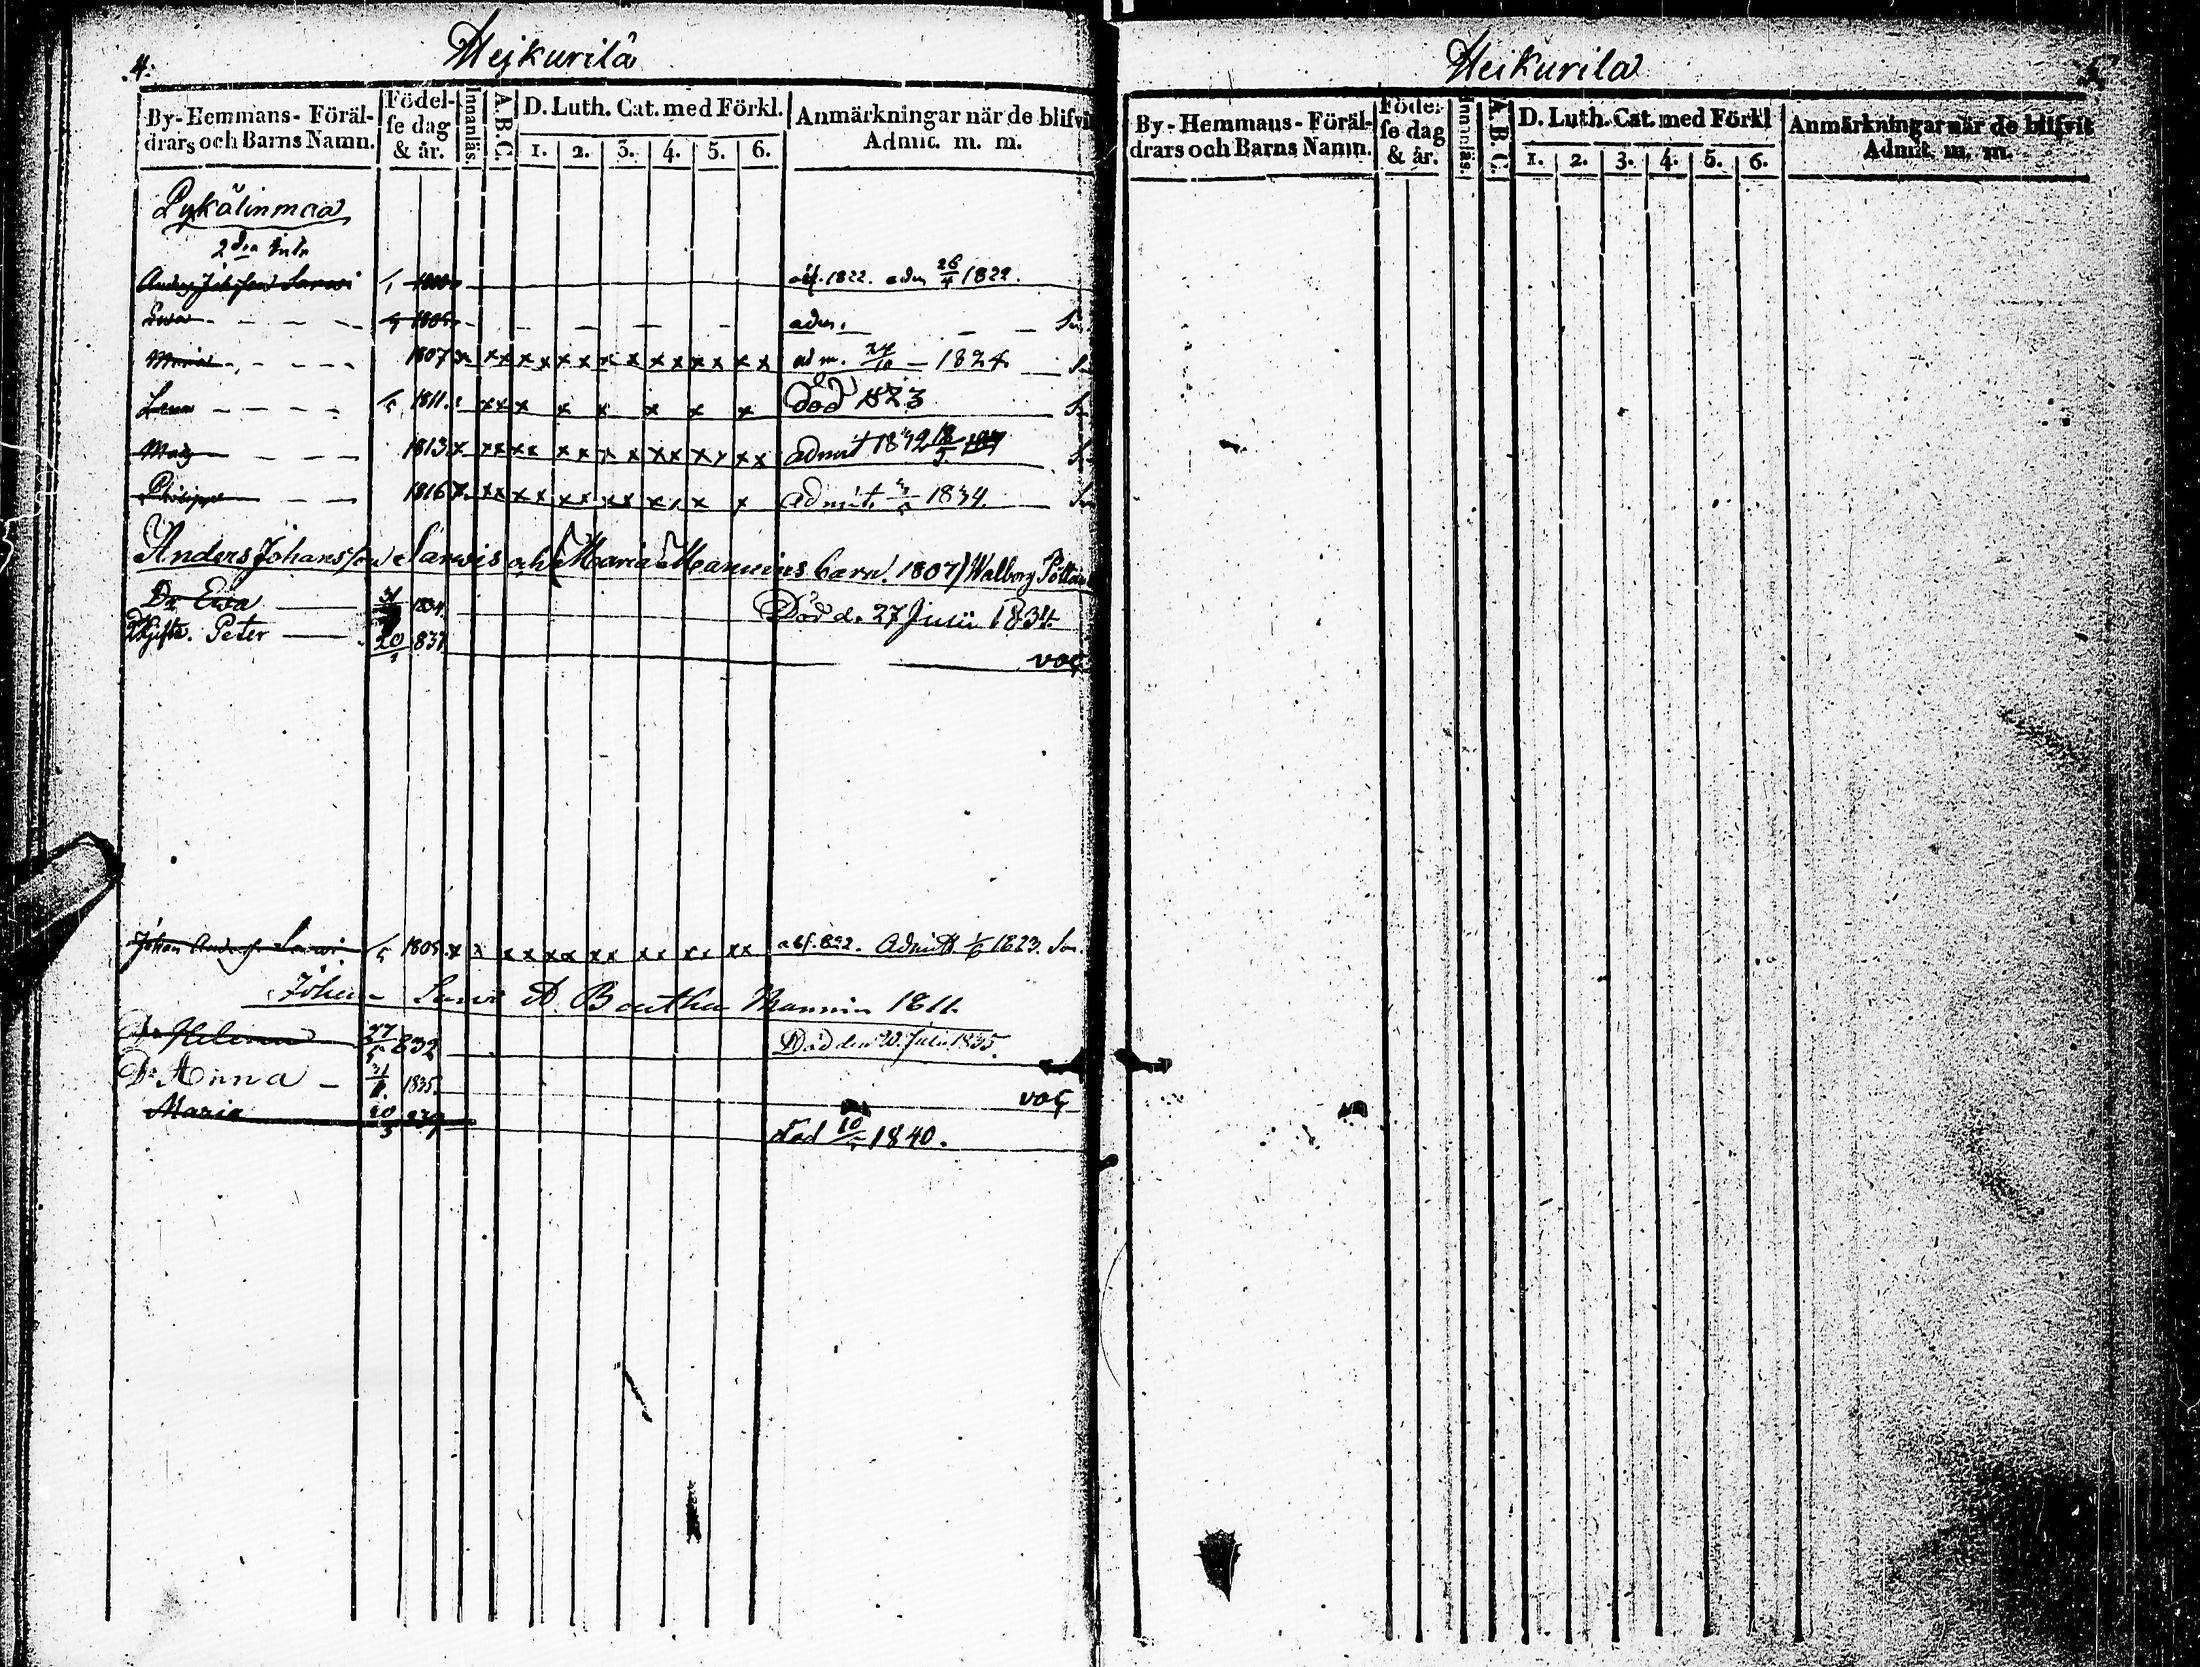 4.
Mejkurilä
By-Hemmans-Föräl-
drars och Barns Namn.
Födel-
se dag
& år.
Innanläs.
A.B.C.
D. Luth. Cat. med Förkl.
1. 2. 3. 4. 5. 6.
Anmärkningar när de blifvit
Admit. m. m.
Pykälinmaa
2dra
Anders Johansson Sarwi 1822. adm 26/4 1822.
Ewa - - - - adm. - -
Maria - - - - 1807 x xx x x x x x x x x x x x x adm. 24/10 - 1824
Lena - - - - 1811 xx x x x x x x Död 1823
Mats - - - 1813 x xx x x x x x x x x x x x x admit
- - - 1816 x. xx x x x x x x x x x x Admit. 1834.
Anders Johansson Sarwis och (Maria Mannins barn. 1807) Walborg
Dr Ewa 1834. Död d. 27 Junii 1834.
Peter 20 837 vac
Johan Anders. Sarwi. 1805 x x x x x x x x x x x x x x abs. 822. Admitt. 1823.
Johan Sarwi Mannin 1811.
Dr Helena 27/5 832 Död den Julii 1835.
Dr Anna - 31 1835. vac
Maria 839 död 10 1840.
Meikurila
By-Hemmans-Föräl-
drars och Barns Namn.
Födel-
se dag
& år.
Innanläs.
A. B. C.
D. Luth. Cat. med Förkl
1. 2. 3. 4. 5. 6.
Anmärkningar när de blifvit
Admit. m. m.